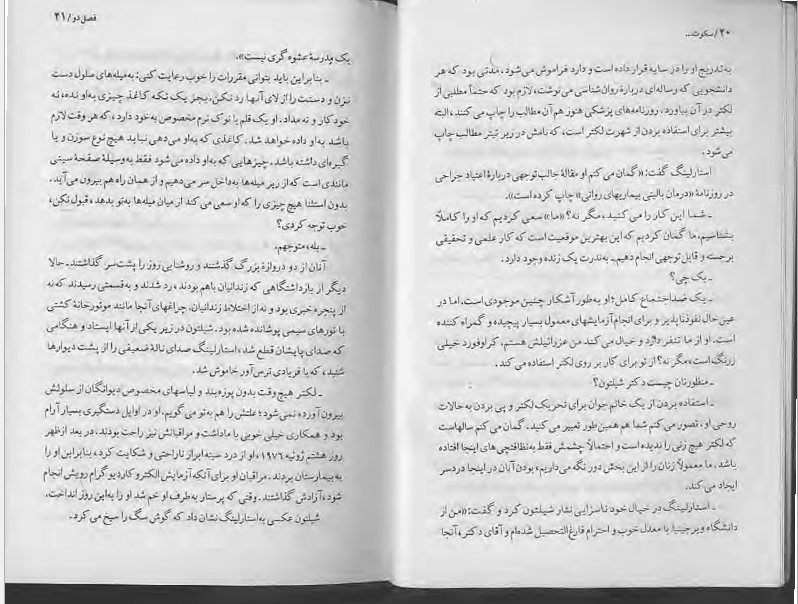 ۲۰/سکوت...
به تدریج او را در سایه قرار داده است و دارد فراموش می‌شود، مدتی بود که هر
دانشجویی که رساله‌ای دربارهٔ روان‌شناسی می‌نوشت، لازم بود که حتماً مطلبی از
لکتر در آن بیاورد. روزنامه‌های پزشکی هنوز هم آن مطالب را چاپ می‌کنند، البته
بیشتر برای استفاده بردن از شهرت لکتر است، که نامش در زیر تیتر مطالب چاپ
می‌شود.
استارلینگ گفت: «گمان می‌کنم او مقالهٔ جالب‌توجهی دربارهٔ اعتیاد جراحی
در روزنامهٔ «درمان بالینی بیماریهای روانی» چاپ کرده است».
ـ شما این کار را می‌کنید، مگر نه؟ «ما» سعی کردیم که او را کاملاً
بشناسیم. ما گمان کردیم که این بهترین موقعیت است که کار علمی و تحقیقی
برجسته و قابل توجهی انجام دهیم. به‌ندرت یک زنده وجود دارد.
ـ یک چی؟
ـ یک ضداجتماع کامل؛ او به‌طور آشکار چنین موجودی است. اما در
عین‌حال نفوذناپذیر و برای انجام آزمایشهای معمول بسیار پیچیده و گمراه کننده
است. او از ما تنفر دارد و خیال می‌کند من عزرائیلش هستم. کراوفورد خیلی
زرنگ است، مگر نه؟ از تو برای کار بر روی لکتر استفاده می‌کند.
ـ منظورتان چیست دکتر شیلتون؟
ـ استفاده بردن از یک خانم جوان برای تحریک لکتر و پی بردن به حالات
روحی او. تصور می‌کنم شما هم همین طور تعبیر می‌کنید. گمان می‌کنم سالهاست
که لکتر هیچ زنی را ندیده است و احتمالاً چشمش فقط به نظافتچی‌های اینجا افتاده
باشد. ما معمولاً زنان را از این بخش دور نگه می‌داریم، بودن آنان در اینجا دردسر
ایجاد می‌کند.
ـ استارلینگ در خیال خود ناسزایی نثار شیلتون کرد و گفت: «من از
دانشگاه ویرجینیا، با معدل خوب و احترام فارغ‌التحصیل شده‌ام و آقای دکتر، آنجا
فصل دو/ ۲۱
یک مدرسهٔ عشوه گری نیست».
ـ بنابراین باید بتوانی مقررات را خوب رعایت کنی: به میله‌های سلول دست
نزن و دستت را از لای آنها رد نکن. بجز یک تکه کاغذ چیزی به‌او نده، نه
خودکار و نه مداد. او یک قلم با نوک نرم مخصوص به خود دارد، که هر وقت لازم
باشد به‌او داده خواهد شد. کاغذی که به‌او می‌دهی نباید هیچ نوع سوزن و یا
گیره‌ای داشته باشد. چیزهایی که به‌او داده می‌شود فقط به‌وسیلهٔ صفحهٔ سینی
مانندی است که از زیر میله‌ها به‌داخل سر می‌دهیم و از همان راه هم بیرون می‌آید.
بدون استثنا هیچ چیزی را که او سعی می‌کند از میان میله‌ها به‌تو بدهد، قبول نکن،
خوب توجه کردی؟
ـ بله، متوجهم.
آنان از دو دروازهٔ بزرگ گذشتند و روشنایی روز را پشت‌سر گذاشتند. حالا
دیگر از بازداشتگاهی که زندانیان باهم بودند، رد شدند و به‌قسمتی رسیدند که نه
از پنجره خبری بود و نه از اختلاط زندانیان. چراغهای آنجا مانند موتورخانهٔ کشتی
با تورهای سیمی پوشانده شده بود. شیلتون در زیر یکی از آنها ایستاد و هنگامی
که صدای پایشان قطع شد، استارلینگ صدای نالهٔ ضعیفی را از پشت دیوارها
شنید، که با فریادی ترس‌آور خاموش شد.
ـ لکتر هیچ‌وقت بدون پوزه‌بند و لباسهای مخصوص دیوانگان از سلولش
بیرون آورده نمی‌شود؛ علتش را هم به‌تو می‌گویم. او در اوایل دستگیری بسیار آرام
بود و همکاری خیلی خوبی با ما داشت و مراقبانش نیز راحت بودند. در بعد ازظهر
روز هشتم ژوئیه ۱۹۷۶، او از درد سینه ابراز ناراحتی و شکایت کرد، بنابراین او را
به بیمارستان بردند. مراقبان او برای آنکه آزمایش الکتروکاردیوگرام رویش انجام
شود، آزادش گذاشتند. وقتی که پرستار به‌طرف او خم شد او را به‌این روز انداخت.
شیلتون عکسی به‌استارلینگ نشان داد که گوش سگ را سیخ می‌کرد.